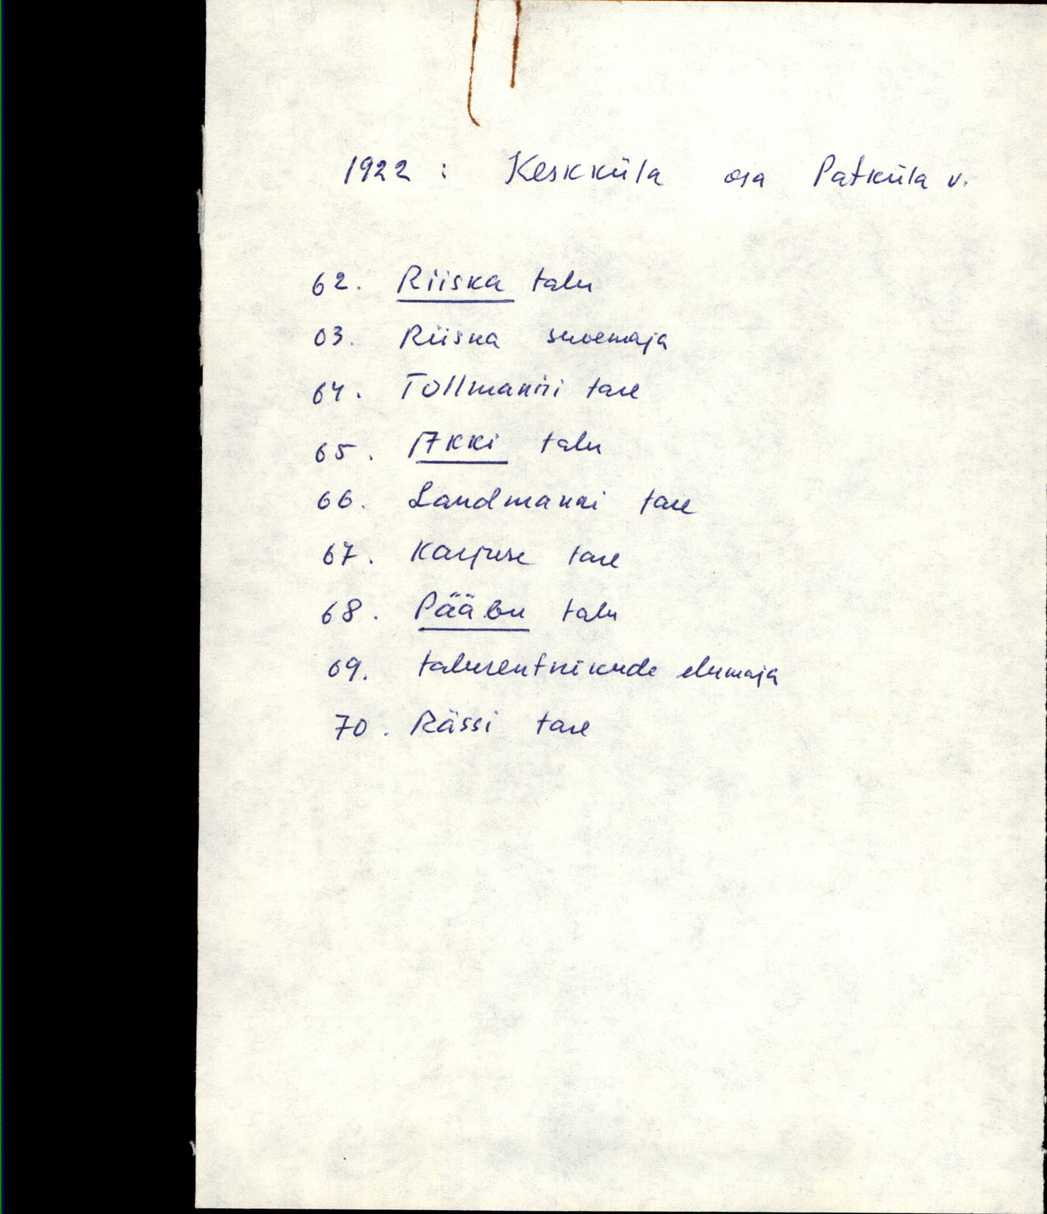 1922 : Keskküla osa Patküla v.
62. Riiska talu
63. Riiska suvemaja
64. Tollmanni tare
65. Akki talu
66. Landmanni tare
67. Karjuse tare
68. Pääbu talu
69. talurentnikude elumaja
70. Rässi tare